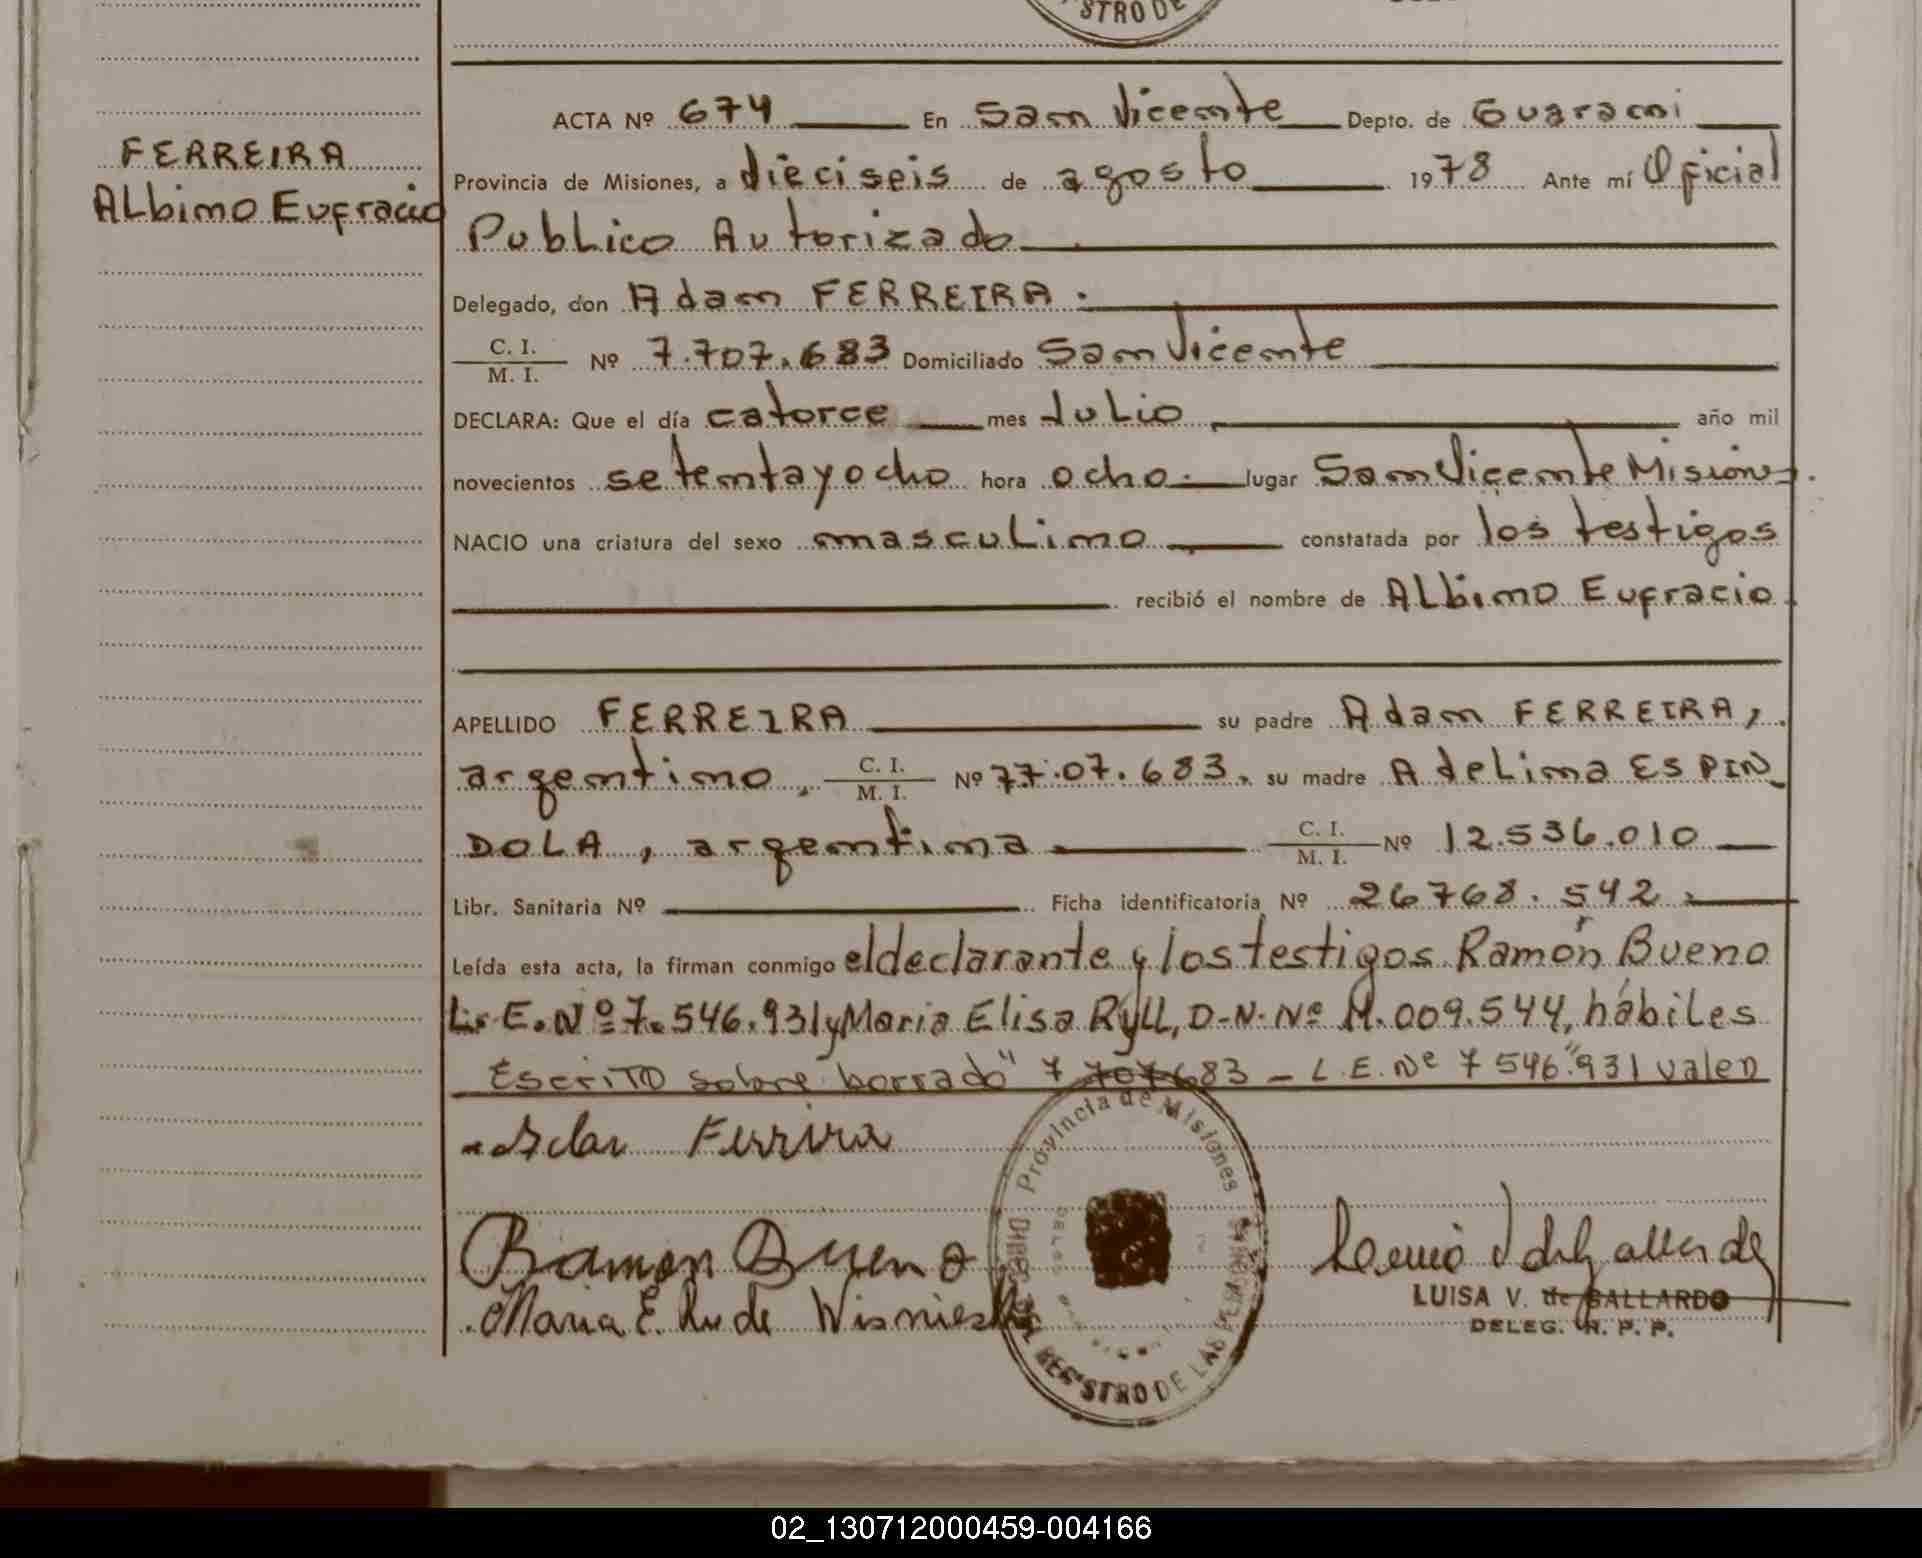 STRO DE
ACTA Nº 674 En San Vicente Depto. de Guarani
FERREIRA
Albino Eufracio
Provincia de Misiones, a dieciseis de agosto 1978 Ante mí Oficial
Publico Autorizado
Delegado, don Adam FERREIRA.
C. I.
M. I.
Nº 7.707.683 Domiciliado San Vicente
DECLARA: Que el día catorce mes Julio año mil
novecientos setentayocho hora ocho. lugar San Vicente Misiones.
NACIO una criatura del sexo masculino constatada por los testigos
recibió el nombre de Albino Eufracio
APELLIDO FERREIRA su padre Adam FERREIRA,
argentino, C. I. M. I. Nº 77.07.683, su madre Adelina ESPIN_
DOLA, argentina C. I. M. I. Nº 12.536.010
Libr. Sanitaria Nº Ficha identificatoria Nº 26768.542
Leída esta acta, la firman conmigo el declarante y los testigos Ramón Bueno
L. E. Nº 7.546.931 y Maria Elisa Ryll, D-N-Nº M.009.544, hábiles
Escrito sobre borrado " 7 707683 - L.E. Nº 7 546"931 valen
Adan Ferreira
Provincia de Misiones
REGISTRO DE LAS
Ramon Bueno
Maria E. R. de Wisnieski
LUISA V. de GALLARDO
DELEG. R. P. P.
02_130712000459-004166